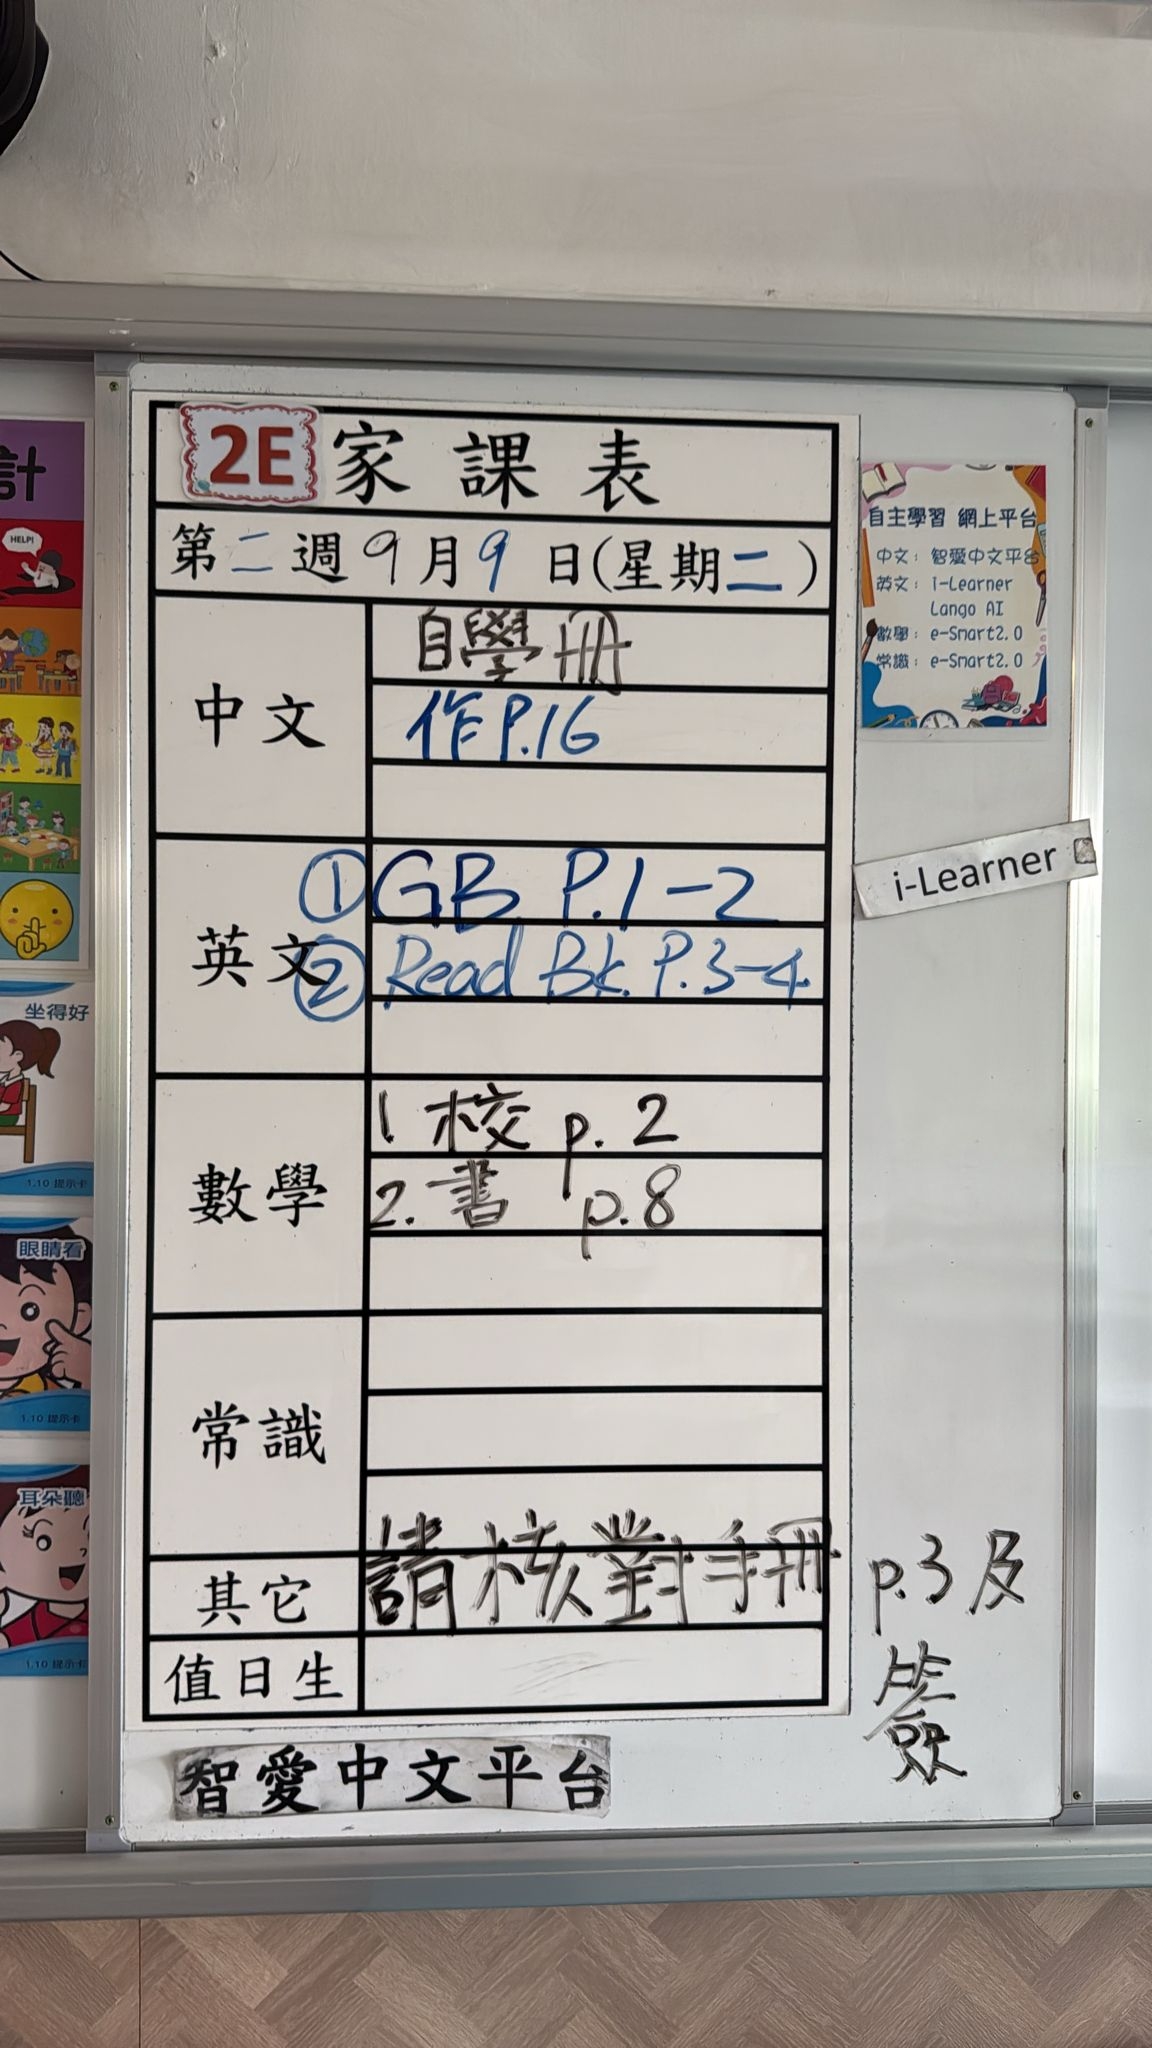 2E 家課表
第二週9月9日(星期二)
中文
自學冊
作P.16
英文
①GB P.1-2
②Read Bk. P.3-4
數學
1. 校 p.2
2. 書 p.8
常識
其它
請核對手冊 p.3及
簽
值日生
智愛中文平台
自主學習 網上平台
中文：智愛中文平台
英文：i-Learner
Lango AI
數學：e-Smart2.0
常識：e-Smart2.0
i-Learner
計
HELP!
坐得好
1.10 提示卡
眼睛看
1.10 提示卡
耳朵聽
1.10 提示卡